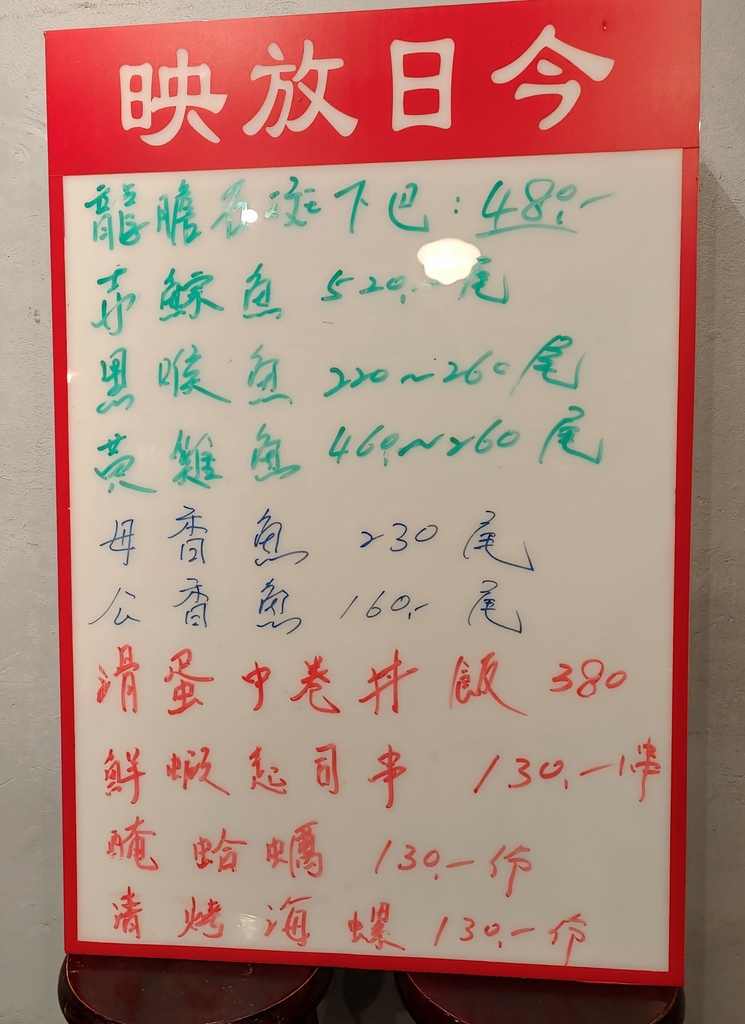 今日放映
龍膽石斑下巴:480.-
赤鯮魚 520.- 尾
黑喉魚 220~260尾
黃雞魚 460.~260尾
母香魚 230 尾
公香魚 160.- 尾
滑蛋中卷丼飯 380
鮮蝦起司串 130.-1串
醃蛤蠣 130.-份
清烤海螺 130.-份